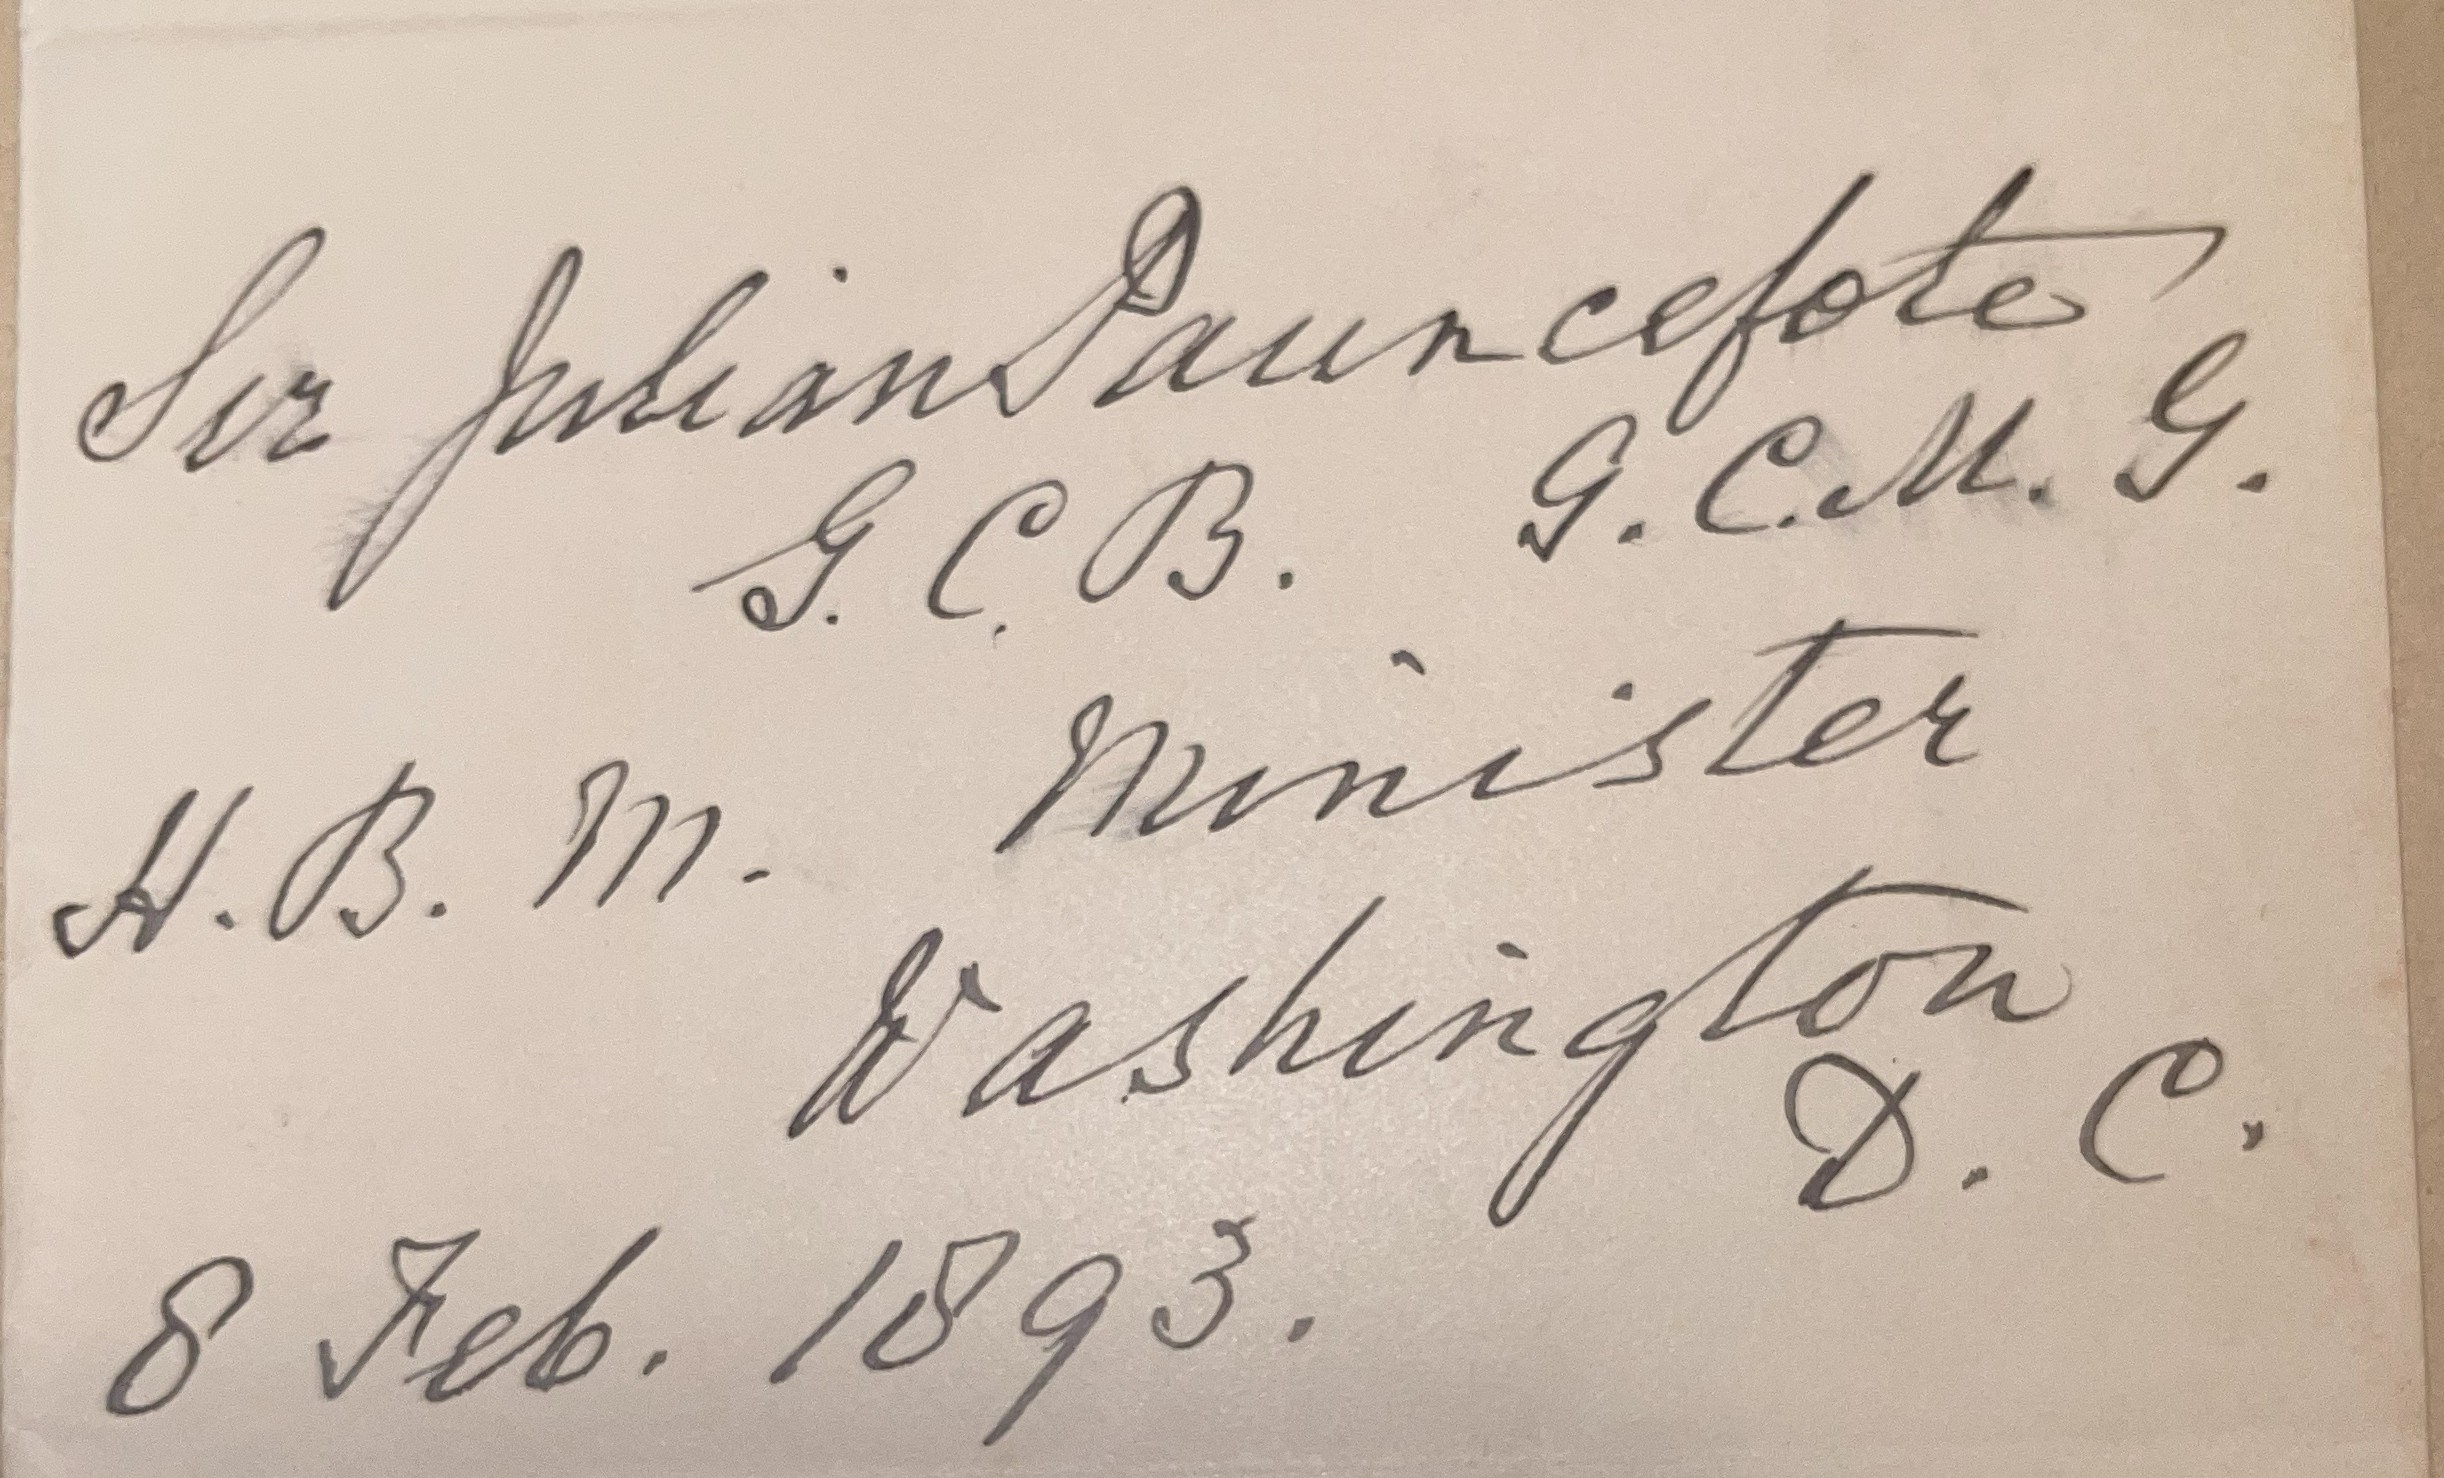 Sir Julian Pauncefote
G. C. B. G. C. M. G.
H. B. M. Minister
Washington
D. C.
8 Feb. 1893.